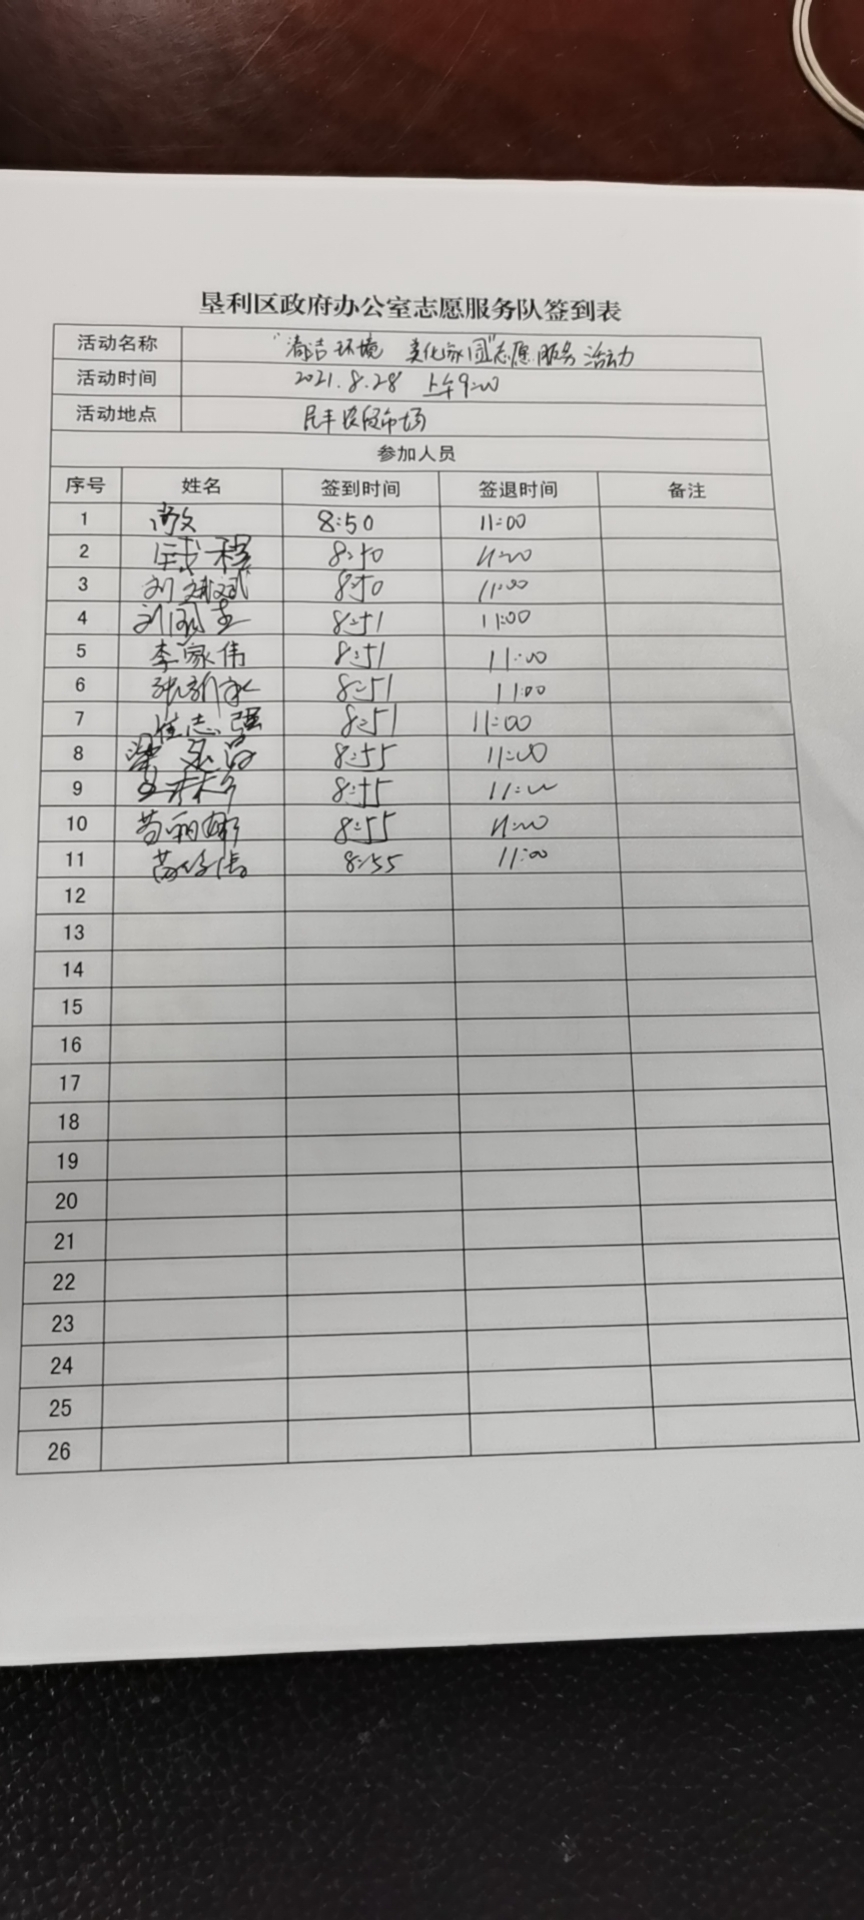 垦利区政府办公室志愿服务队签到表
活动名称 "清洁环境 美化家园"志愿服务活动
活动时间 2021.8.28 上午9:00
活动地点 民丰农贸市场
参加人员
序号 姓名 签到时间 签退时间 备注
1 8:50 11:00
2 8:50 11:00
3 8:50 11:00
4 8:51 11:00
5 李家伟 8:51 11:00
6 8:51 11:00
7 崔志强 8:51 11:00
8 8:55 11:00
9 8:55 11:00
10 8:55 11:00
11 8:55 11:00
12
13
14
15
16
17
18
19
20
21
22
23
24
25
26